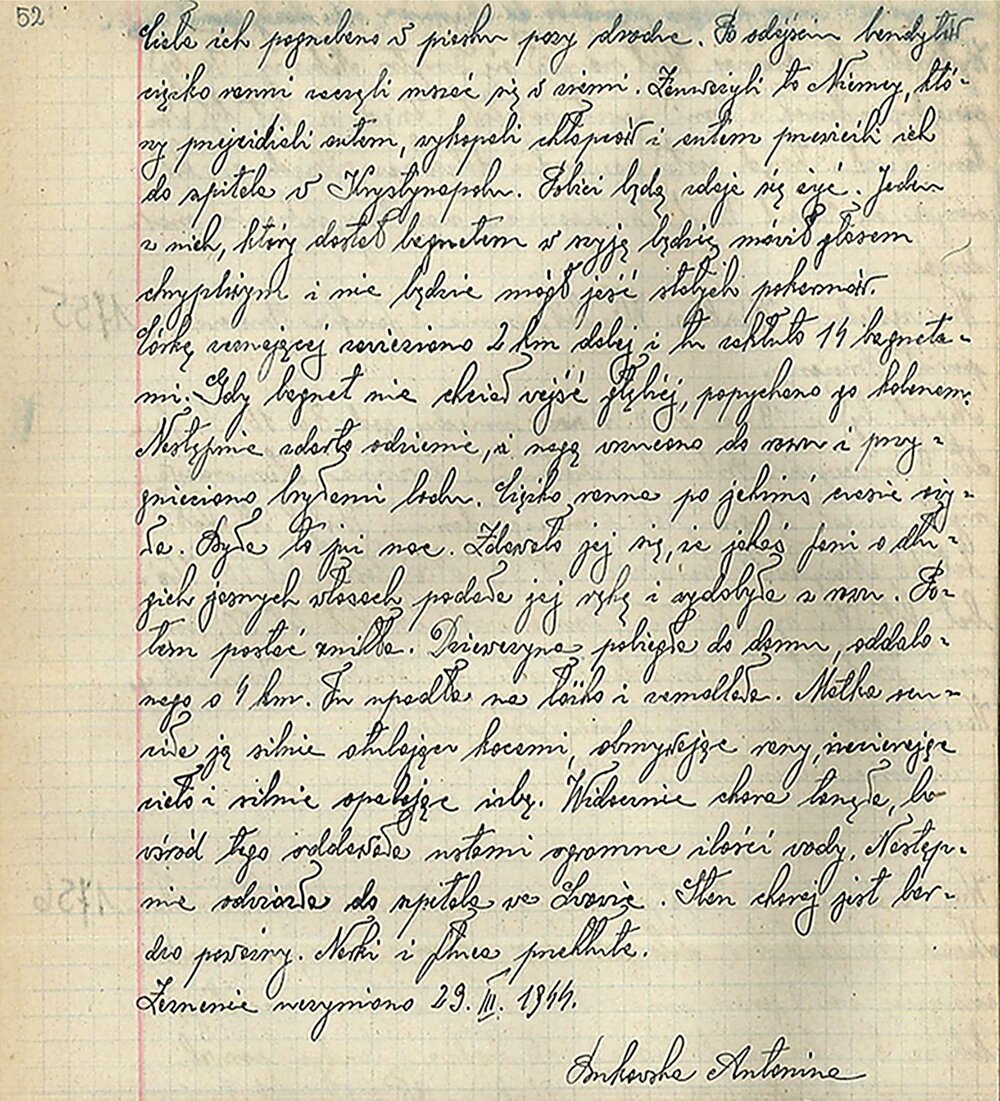 52
Ciała ich pogrzebano w piasku przy drodze. Po odejściu bandytów
ciężko ranni zaczęli ruszać się w ziemi. Zauważyli to Niemcy, któ-
rzy przejeżdżali autem, wykopali chłopców i autem przewieźli ich
do szpitala w Krystynopolu. Pobici będą zdaje się żyć. Jeden
z nich, który dostał bagnetem w szyję będzie mówił głosem
chrypliwym i nie będzie mógł jeść stałych pokarmów.
Córkę zeznającej zawieziono 2 km dalej i tu zakłuto 14 bagneta-
mi. Gdy bagnet nie chciał wejść głębiej, popychano go kolanem.
Następnie zdarto odzienie, a nagą wrzucono do rowu i przy-
gnieciono bryłami lodu. Ciężko ranna po jakimś czasie oży-
ła. Była to już noc. Zdawało jej się, że jakaś Pani o dłu-
gich jasnych włosach podała jej rękę i wydobyła z rowu. Po-
tem postać znikła. Dziewczyna pobiegła do domu, oddalo-
nego o 4 km. Tu upadła na łóżko i zemdlała. Matka ocu-
ciła ją silnie otulając kocami, obmywając rany, nacierając
ciało i silnie opalając izbę. Widocznie chora tonęła, bo
wśród tego oddawała ustami ogromne ilości wody. Następ-
nie odwiozła do szpitala we Lwowie. Stan chorej jest bar-
dzo poważny. Nerki i płuca przekłute.
Zeznanie uczyniono 29. III. 1944.
Bukowska Antonina
1755
1756